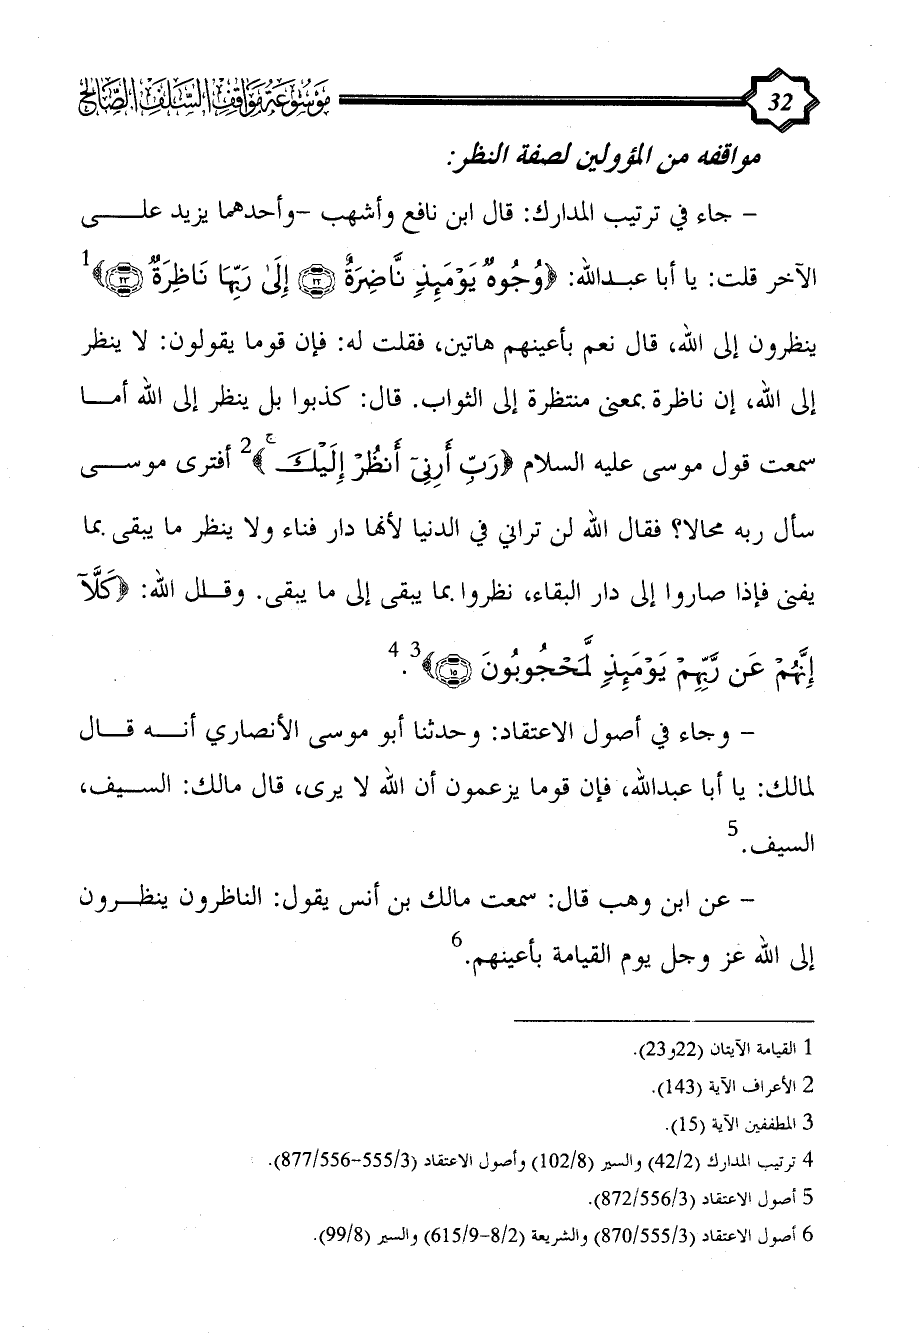 32 موسوعة مواقف السلف الصالح
مواقفه من المؤولين لصفة النظر:
- جاء في ترتيب المدارك: قال ابن نافع وأشهب -وأحدهما يزيد علـــى
الآخر قلت: يا أبا عبـدالله: ﴿وُجُوهٌ يَوْمَئِذٍ نَّاضِرَةٌ ﴿٢٢﴾ إِلَىٰ رَبِّهَا نَاظِرَةٌ ﴿٢٣﴾﴾1
ينظرون إلى الله، قال نعم بأعينهم هاتين، فقلت له: فإن قوما يقولون: لا ينظر
إلى الله، إن ناظرة بمعنى منتظرة إلى الثواب. قال: كذبوا بل ينظر إلى الله أمـا
سمعت قول موسى عليه السلام ﴿رَبِّ أَرِنِىٓ أَنظُرْ إِلَيْكَ ۚ﴾2 أفترى موســى
سأل ربه محالا؟ فقال الله لن تراني في الدنيا لأنها دار فناء ولا ينظر ما يبقى بما
يفنى فإذا صاروا إلى دار البقاء، نظروا بما يبقى إلى ما يبقى. وقـلل الله: ﴿كَلَّآ
إِنَّهُمْ عَن رَّبِّهِمْ يَوْمَئِذٍ لَّمَحْجُوبُونَ ﴿١٥﴾﴾3.4
- وجاء في أصول الاعتقاد: وحدثنا أبو موسى الأنصاري أنـــه قــال
لمالك: يا أبا عبدالله، فإن قوما يزعمون أن الله لا يرى، قال مالك: السـيف،
السيف.5
- عن ابن وهب قال: سمعت مالك بن أنس يقول: الناظرون ينظــرون
إلى الله عز وجل يوم القيامة بأعينهم.6
1 القيامة الآيتان (22و23).
2 الأعراف الآية (143).
3 المطففين الآية (15).
4 ترتيب المدارك (42/2) والسير (102/8) وأصول الاعتقاد (555/3-877/556).
5 أصول الاعتقاد (872/556/3).
6 أصول الاعتقاد (870/555/3) والشريعة (8/2-615/9) والسير (99/8).